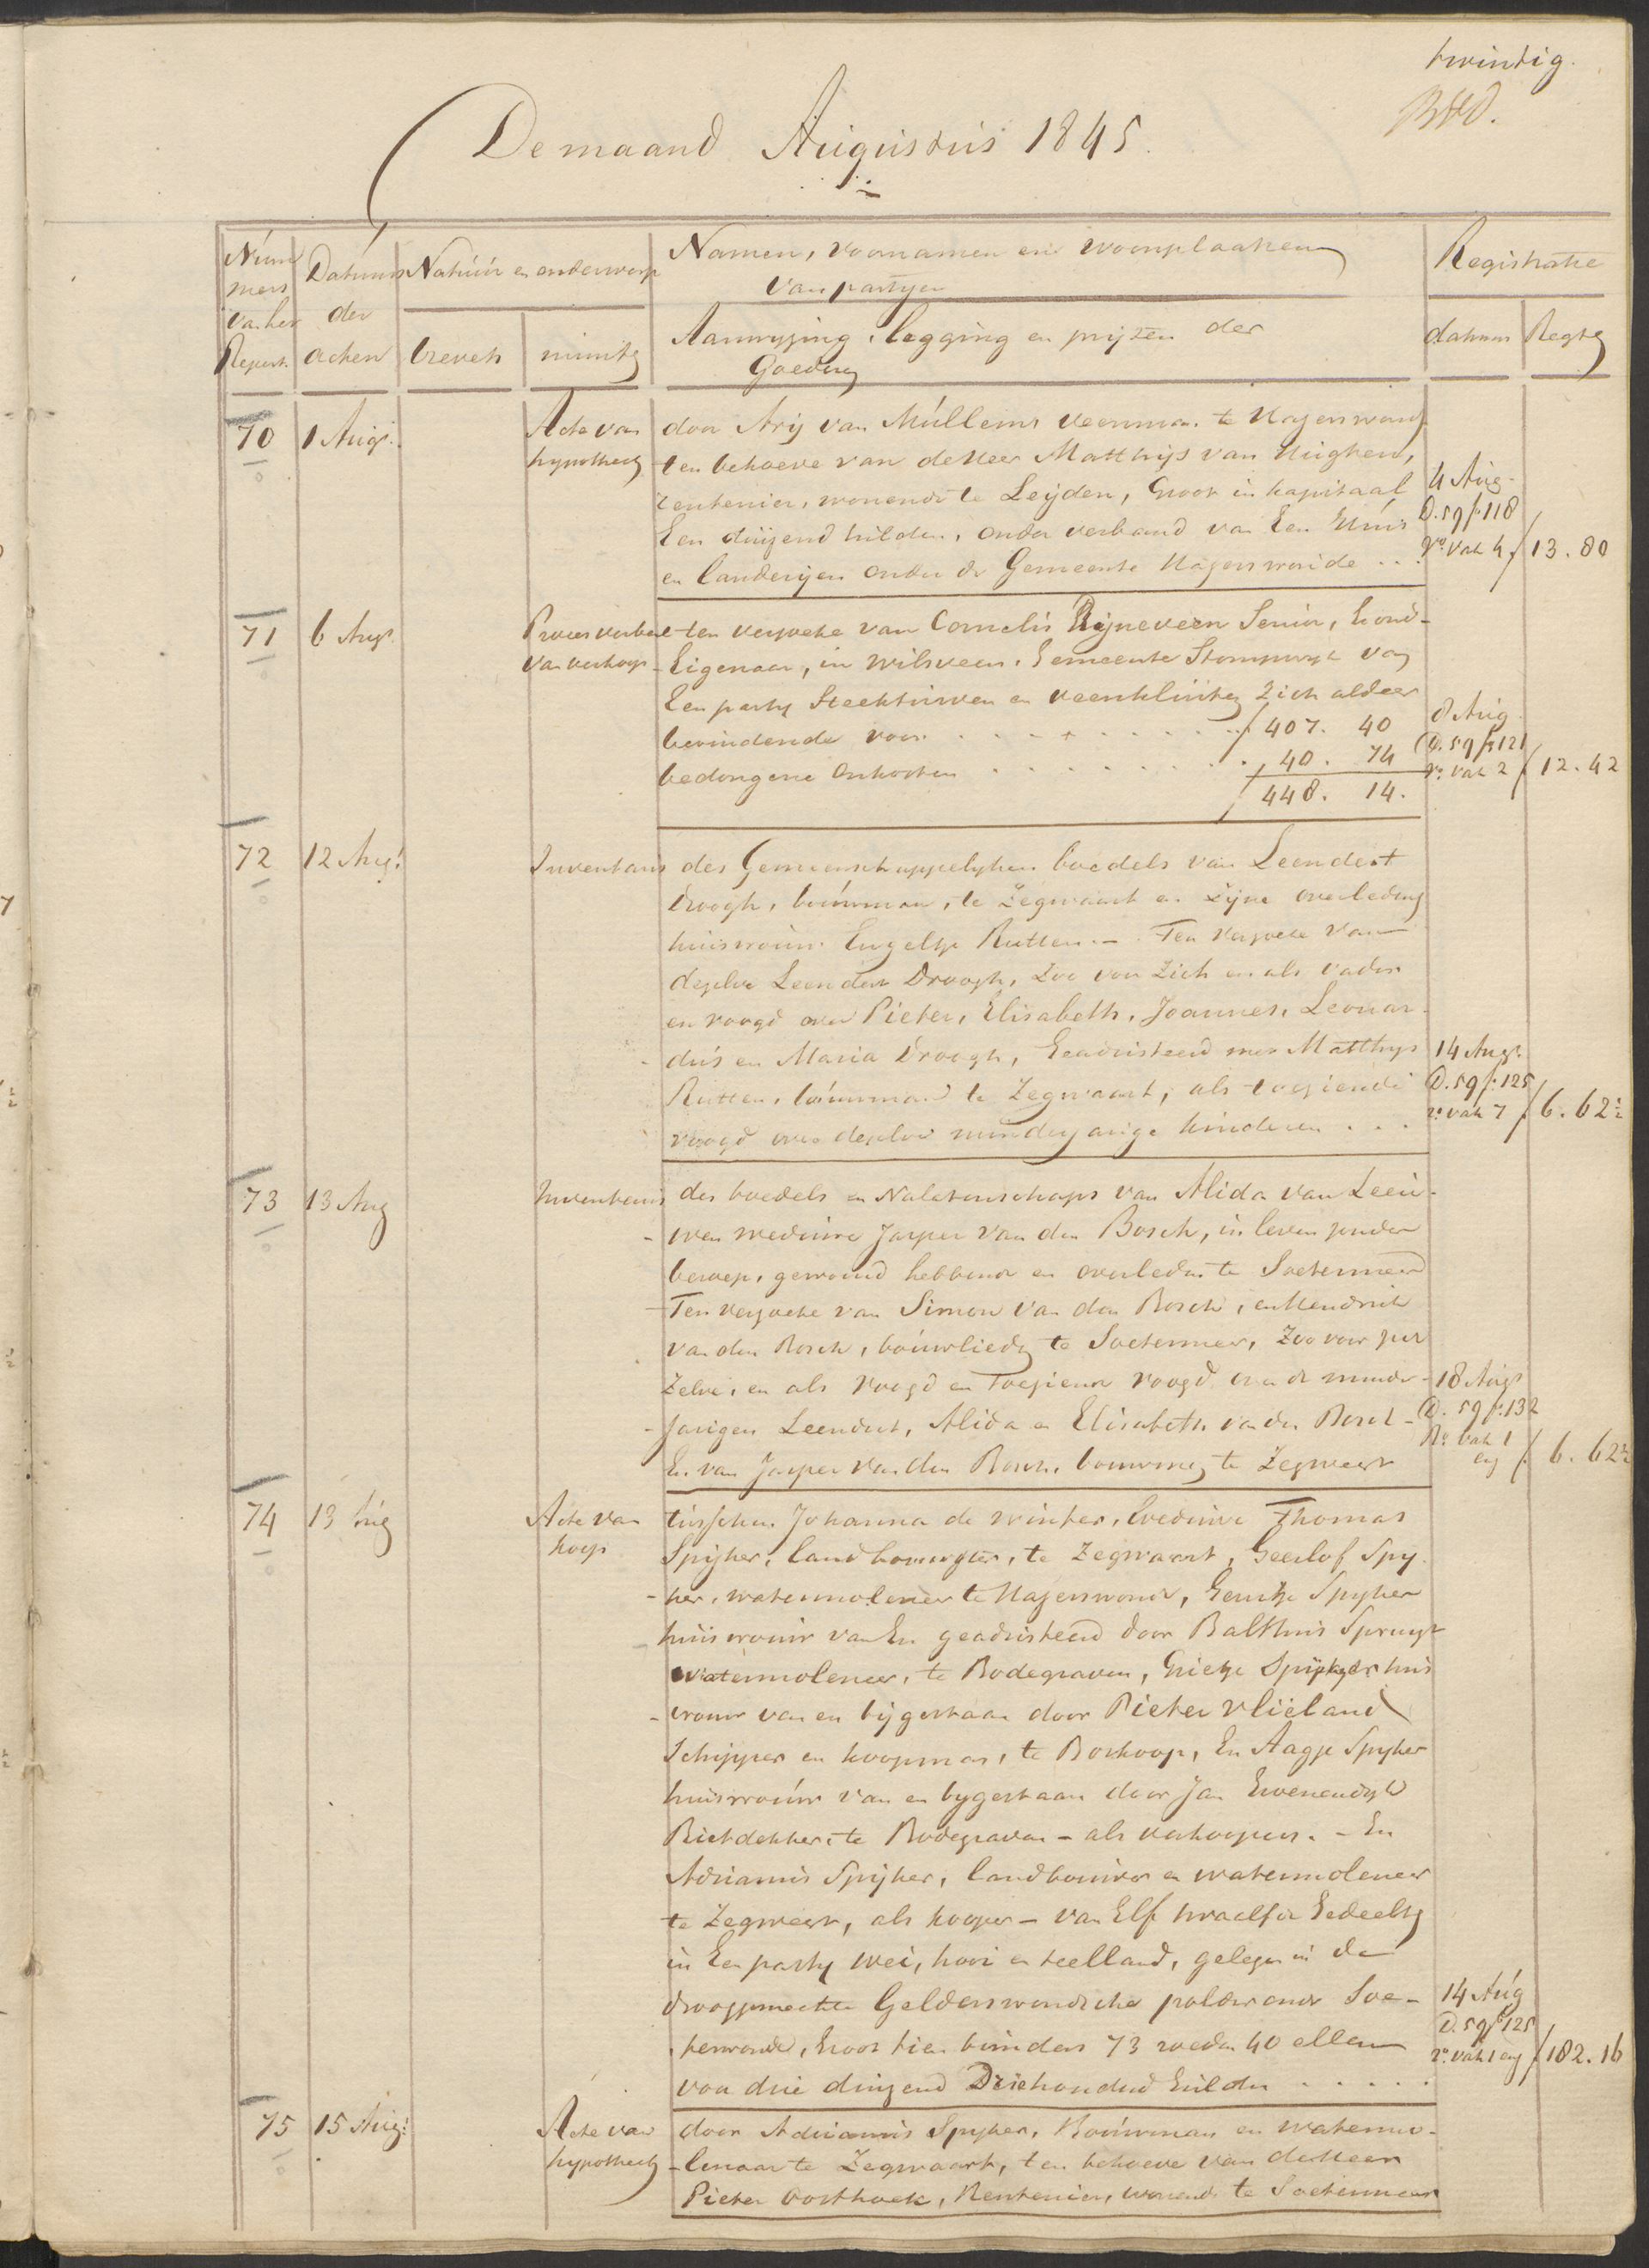 twintig.
De maand Augustus 1845.
Num
mers
van het
Repert.
Datums
der
acten
Natuur en onderwerp
brevets
minuts
Namen, voornamen en woonplaatsen
van partyen
Aanwyzing, legging en pryzen der
Goederen
Registratie
datum
Regten
70
1 Aug.
Acte van
hypotheek
door Arij van Mullems veenman te Hazerswoude
ten behoeve van de Heer Matthijs van
rentenier, wonende te Leijden, Groot in kapitaal
Een duizend Gulden, onder verband van Een Huis
en landeryen onder de Gemeente Hazerswoude ...
4 Aug.
D. 59 f. 118
vo. vak 4
f 13.80
71
6 Aug.
Proces verbaal
van verkoop
ten verzoeke van Cornelis Rijneveen Senior, Grond-
Eigenaar, in Wilsveen, Gemeente Stompwyk van
Een party Steekturven en veenkluiten zich aldaar
bevindende voor . . . . . . . f 407. 40
bedongene Onkosten . . . . . . . 40. 74
f 448. 14.
8 Aug.
D. 59 f. 121
ro. vak 2
f 12.42
72
12 Aug.
Inventaris
des Gemeenschappelyken boedels van Leendert
Droogh, bouwman, te Zegwaart en zijne overledene
huisvrouw Engeltje Rutten. - Ten verzoeke van
dezelve Leendert Droogh, Zoo voor Zich en als vader
en voogd over Pieter, Elisabeth, Joannes, Leonar-
dus en Maria Droogh, Geadsisteerd met Matthys
Rutten, bouwman te Zegwaart, als toeziende
voogd over dezelve minderjarige kinderen . . .
14 Aug.
D. 59 f. 125
ro. vak 7
f 6.62½
73
13 Aug
Inventaris
des boedels en Nalatenschaps van Alida van Leeu-
wen weduwe Jasper van den Bosch, in leven zonder
beroep, gewoond hebbende en overleden te Soetermeer
Ten verzoeke van Simon van den Bosch, en Hendrik
van den Bosch, bouwlieden te Soetermeer, Zoo voor zich
Zelve, en als voogd en Toeziend voogd over de minder-
jarigen Leendert, Alida en Elisabeth van den Bosch -
En van Jasper van den Bosch, bouwman te Zegwaart
18 Aug.
D. 59 f. 132
Ro. vak 1
en
f 6.62½
74
13 Aug
Acte van
koop
tusschen Johanna de Winter, Weduwe Thomas
Spijker, landbouwster, te Zegwaart, Geerlof Spy-
ker, watermolenaer te Hazerswoude, Spyker
huisvrouw van En geadsisteerd door Balthus Spruyt
Watermolenaer, te Bodegraven, Grietje Spijker huis
vrouw van en bijgestaan door Pieter Vlieland
Schipper en koopman, te Boskoop, En Aagje Spyker
huisvrouw van en bygestaan door Jan
Rietdekker, te Bodegraven - als verkoopers. - En
Adrianus Spijker, landbouwer en watermolenaer
te Zegwaart, als kooper - van Elf twaalfde Gedeelten
in Een party wei, hooi en teelland, gelegen in de
drooggemaakte Gelderswoudsche polder onder Soe-
terwoude, Groot tien bunders 73 roeden 40 ellen
voor drie duizend Driehonderd Gulden . . . . .
14 Aug
D. 59 f. 125
ro. vak 1 en
f 182.16
75
15 Aug.
Acte van
hypotheek
door Adrianus Spyker, Bouwman en watermo-
lenaar te Zegwaart, ten behoeve van de Heer
Pieter Oosthoek, Rentenier, wonende te Soetermeer